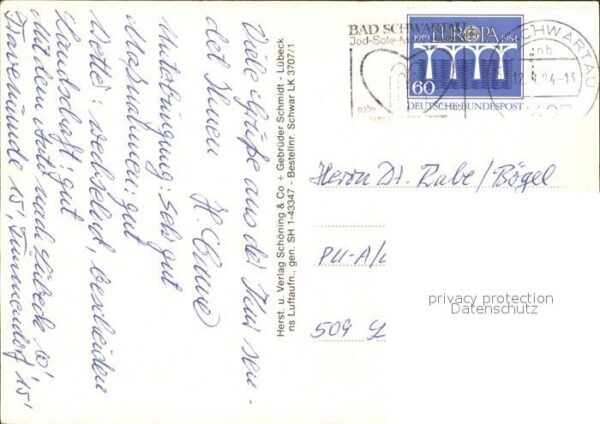 Viele Grüße aus der Kur sen-
det Ihnen
Unterbringung: sehr gut
Maßnahmen: gut
Wetter: wechselnd, bescheiden
Landschaft: gut
Mit dem Auto nach Lübeck 10'
Travemünde 15', Timmendorf 15'
Herst. u. Verlag Schöning & Co + Gebrüder Schmidt - Lübeck
ns Luftaufn., gen. SH 1-43347 - Bestellnr. Schwar LK 3707/1
BAD SCHWARTAU
Jod-Sole-M
1919 EUROPA 1984
60
DEUTSCHE BUNDESPOST
SCHWARTAU
84-13
Herrn Dr. Rabe/Bögel
PU-A/
509 L
privacy protection
Datenschutz